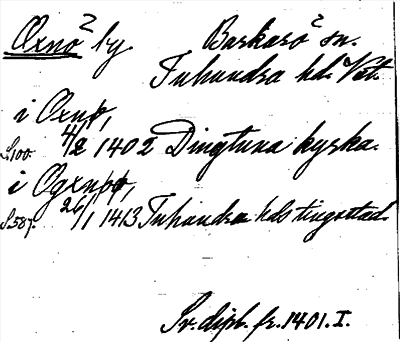 Oxnö by Barkarö sn.
Tuhundra hd. Vst.
i Oxnø,
S. 100. 4/2 1402 Dingtuna kyrka.
i Ogxnø,
S. 587. 26/1 1413 Tuhundra hds tingsstad.
Sv. dipl. fr. 1401. I.